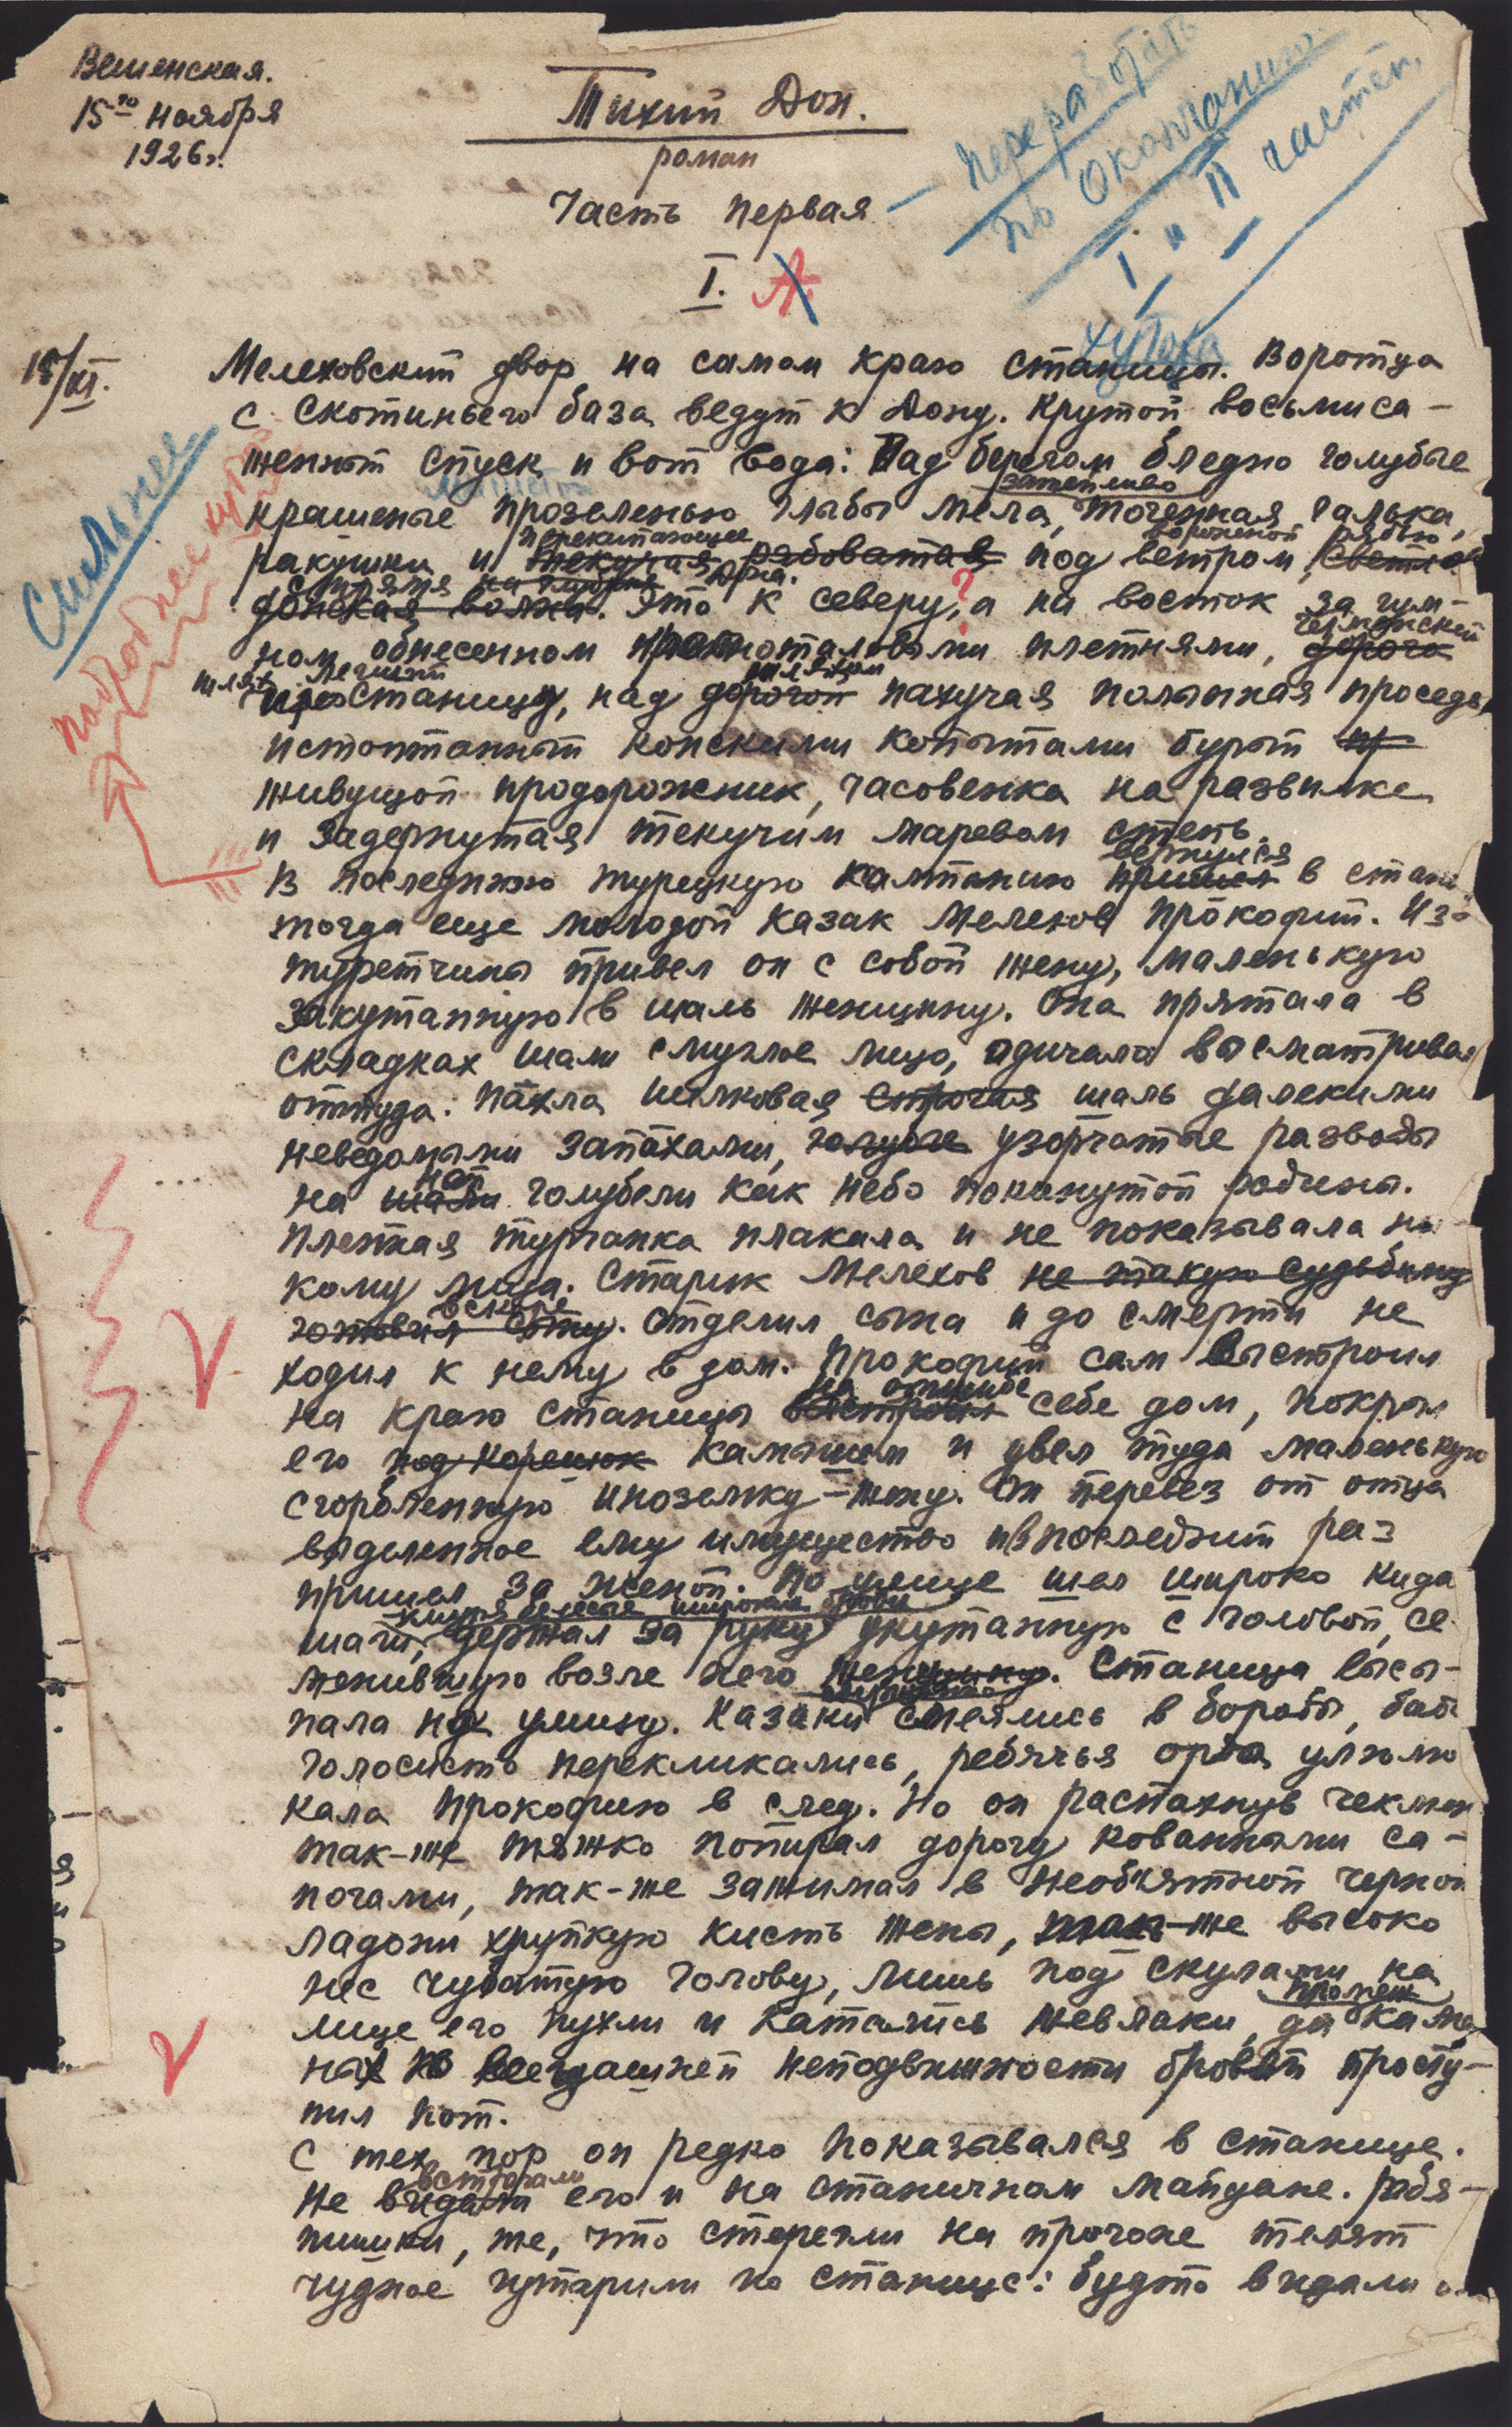 Вешенская.
15го ноября
1926г.
Тихий Дон.
роман
Часть первая
I.
Переработать
по окончанию
I и II частей.
18/XI.
Сильнее
подробнее
хутора
Мелеховский двор на самом краю станицы. Воротца
с скотиньего база ведут к Дону. Крутой восьмиса-
женный спуск и вот вода: Над берегом бледно голубые
затейливо
крашеные прозеленью глыбы мела, точенная галька,
перекипающее вороненой рябью
ракушки и текучая рябоватая под ветром,
стремя Дона.
донская волна. Это к северу, ? а на восток за гум-
Гетманский
ном обнесенном красноталовыми плетнями, дорога
шлях легший шляхом
станицу, над дорогой пахучая полынная проседь,
истоптанный конскими копытами бурый
живущой продорожник, часовенка на развилке
и задернутая текучим маревом степь.
вернулся
В последнюю турецкую кампанию пришел в стани
тогда еще молодой казак Мелехов Прокофий. Из-
туретчины привел он с собой жену, маленькую
закутанную в шаль женщину. Она прятала в
складках шали смуглое лицо, одичало высматривая
оттуда. Пахла шелковая строгая шаль далекими
неведомыми запахами, голубые узорчатые разводы
ней
на шали голубели как небо покинутой родины.
Пленная турчанка плакала и не показывала ни
кому лица. Старик Мелехов не такую судьбину
вскоре
готовил сыну. Отделил сына и до смерти не
ходил к нему в дом. Прокофий сам выстроил
на отшибе
на краю станицы выстроил себе дом, покрыл
его под корешок камышем и увел туда маленькую
сгорбленную иноземку-жену. Он перевез от отца
выделенное ему имущество и в последний раз
пришел за женой. По улице шел широко кидая
шаги, держал за руку укутанную с головой, се
менившую возле него женщину. Станица высы-
пала на улицу. Казаки смеялись в бороды, бабы
голосисто перекликались, ребячья орда улюлю
кала Прокофию в след. Но он распахнув чекмень
так-же тяжко попирал дорогу кованными са-
погами, так-же зажимал в необ'ятной черной
ладони хрупкую кисть жены, так-же высоко
нес чубатую голову, лишь под скулами на
промеж
лице его пухли и катались желваки, да камен
ных по всегдашней неподвижности бровей просту-
пил пот.
С тех пор он редко показывался в станице.
встречали
Не видали его и на станичном майдане. Ребя-
тишки, те, что стерегли на прогоне телят
чудное гутарили по станице: будто видали